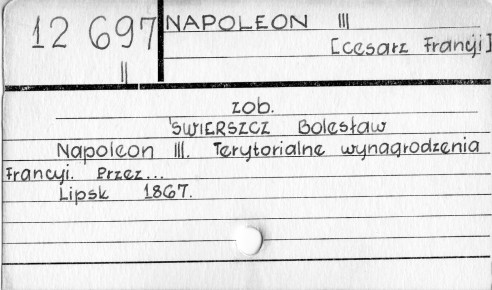 12 697
II
NAPOLEON III
[cesarz Francji]
zob.
ŚWIERSZCZ Bolesław
Napoleon III. Terytorialne wynagrodzenia
Francyi. Przez...
Lipsk 1867.